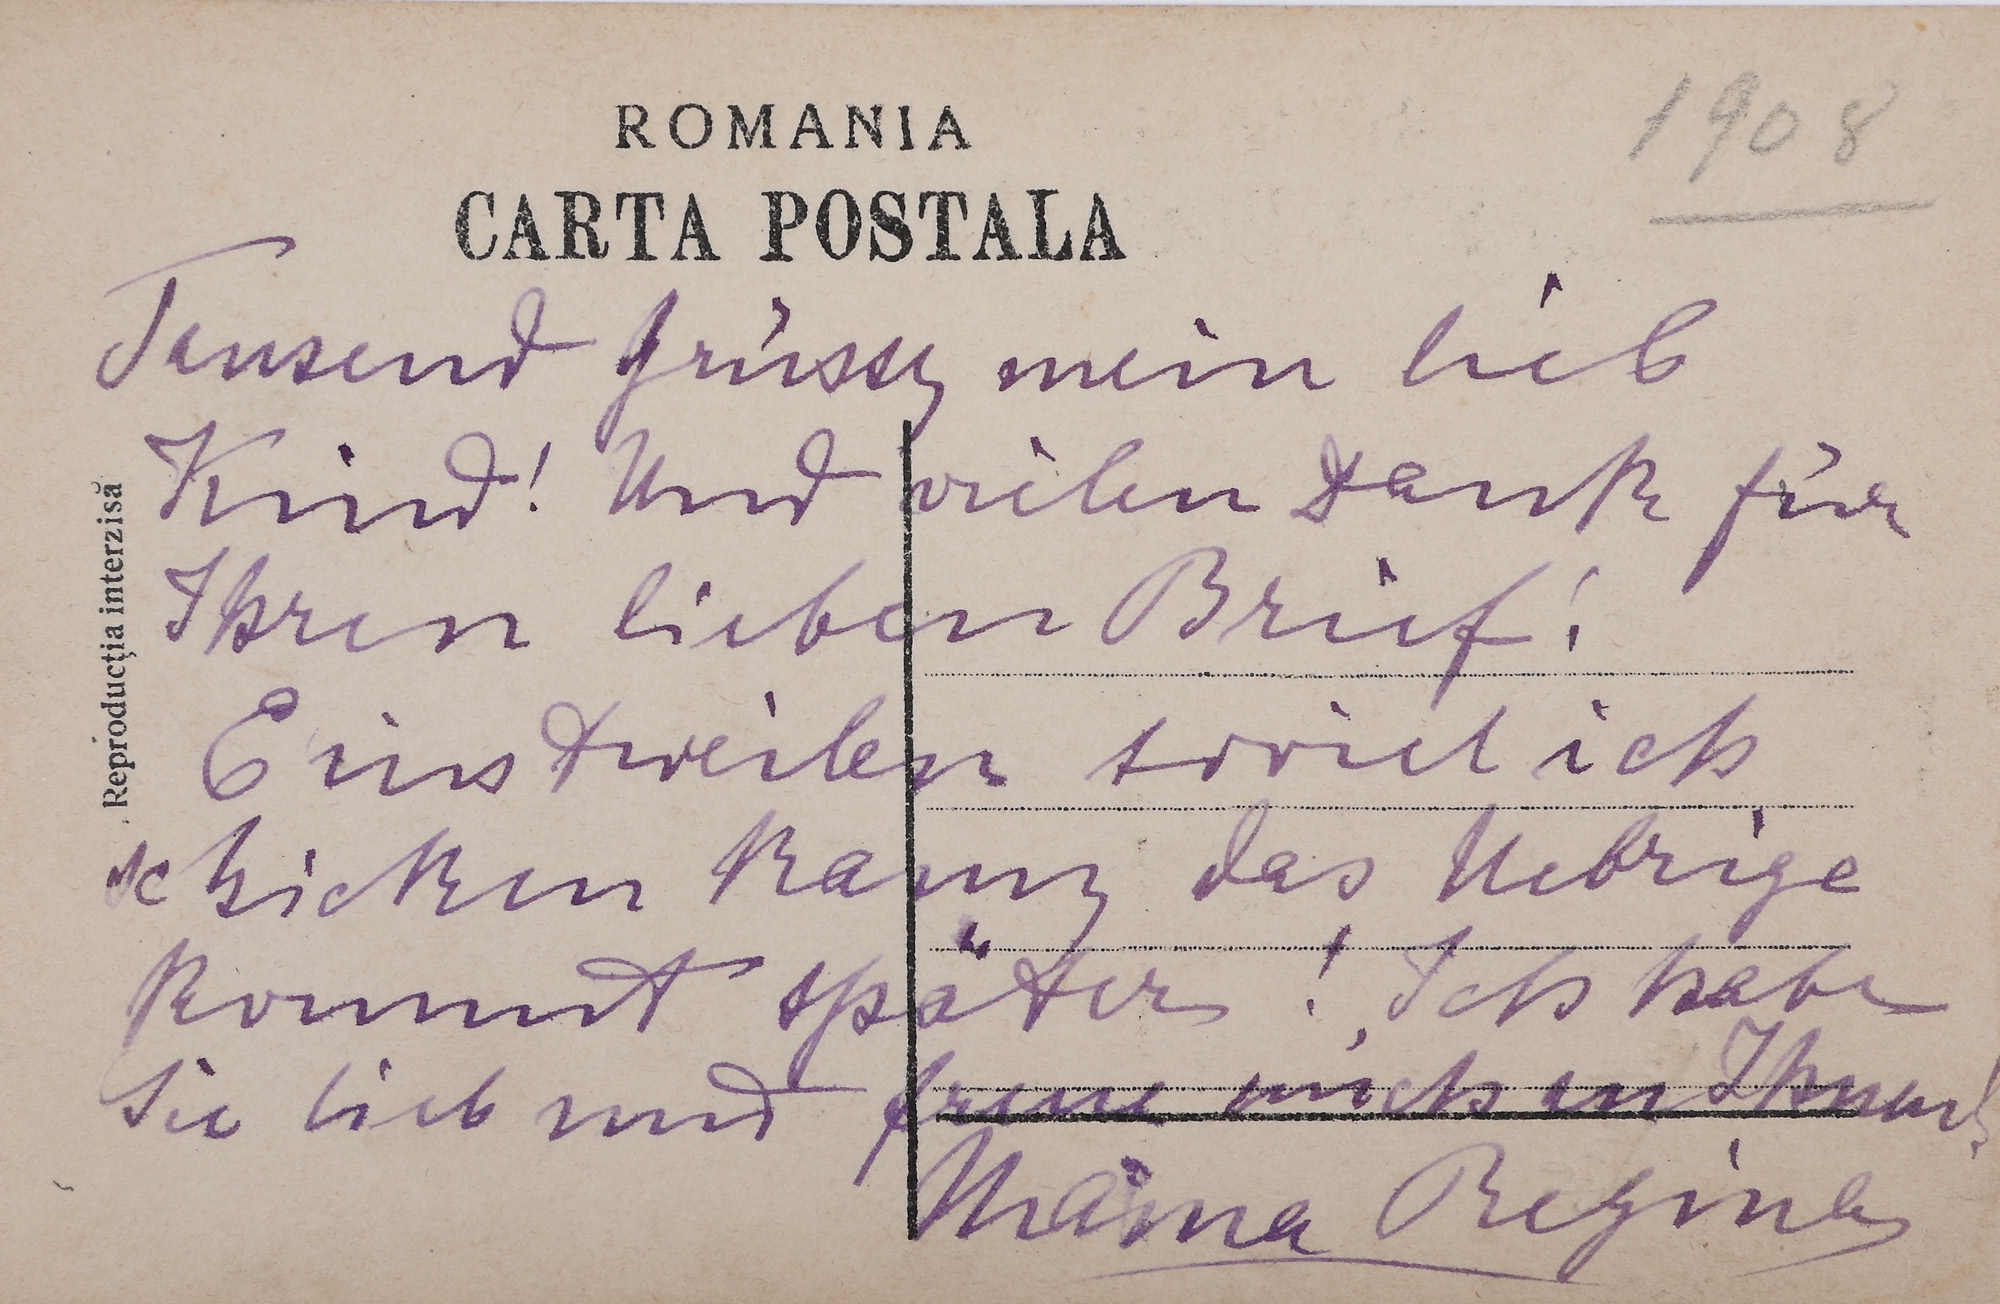 1908
ROMANIA
CARTA POSTALA
Tausend Grüsse, mein lieb
Kind! Und vielen Dank für
Ihren lieben Brief!
Einstweilen soviel ich
schicken kann, das Uebrige
kommt später! Ich habe
Sie lieb und freue mich an Ihnen!
Mama Regina
Reproducţia interzisă